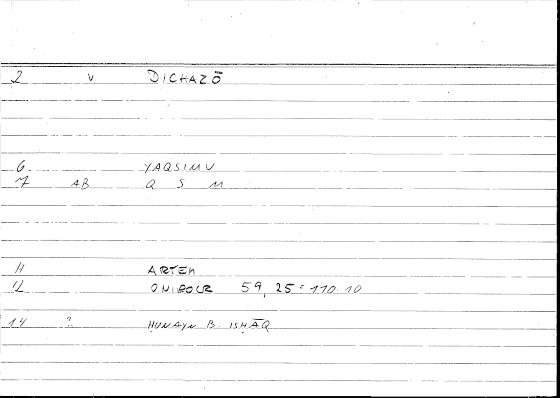 2 v DICHAZŌ
6 YAQSIMU
7 AB Q S M
11 ARTEM
12 ONIROCR 59,25 = 110.10
14 ? ḤUNAYN B. ISḤĀQ